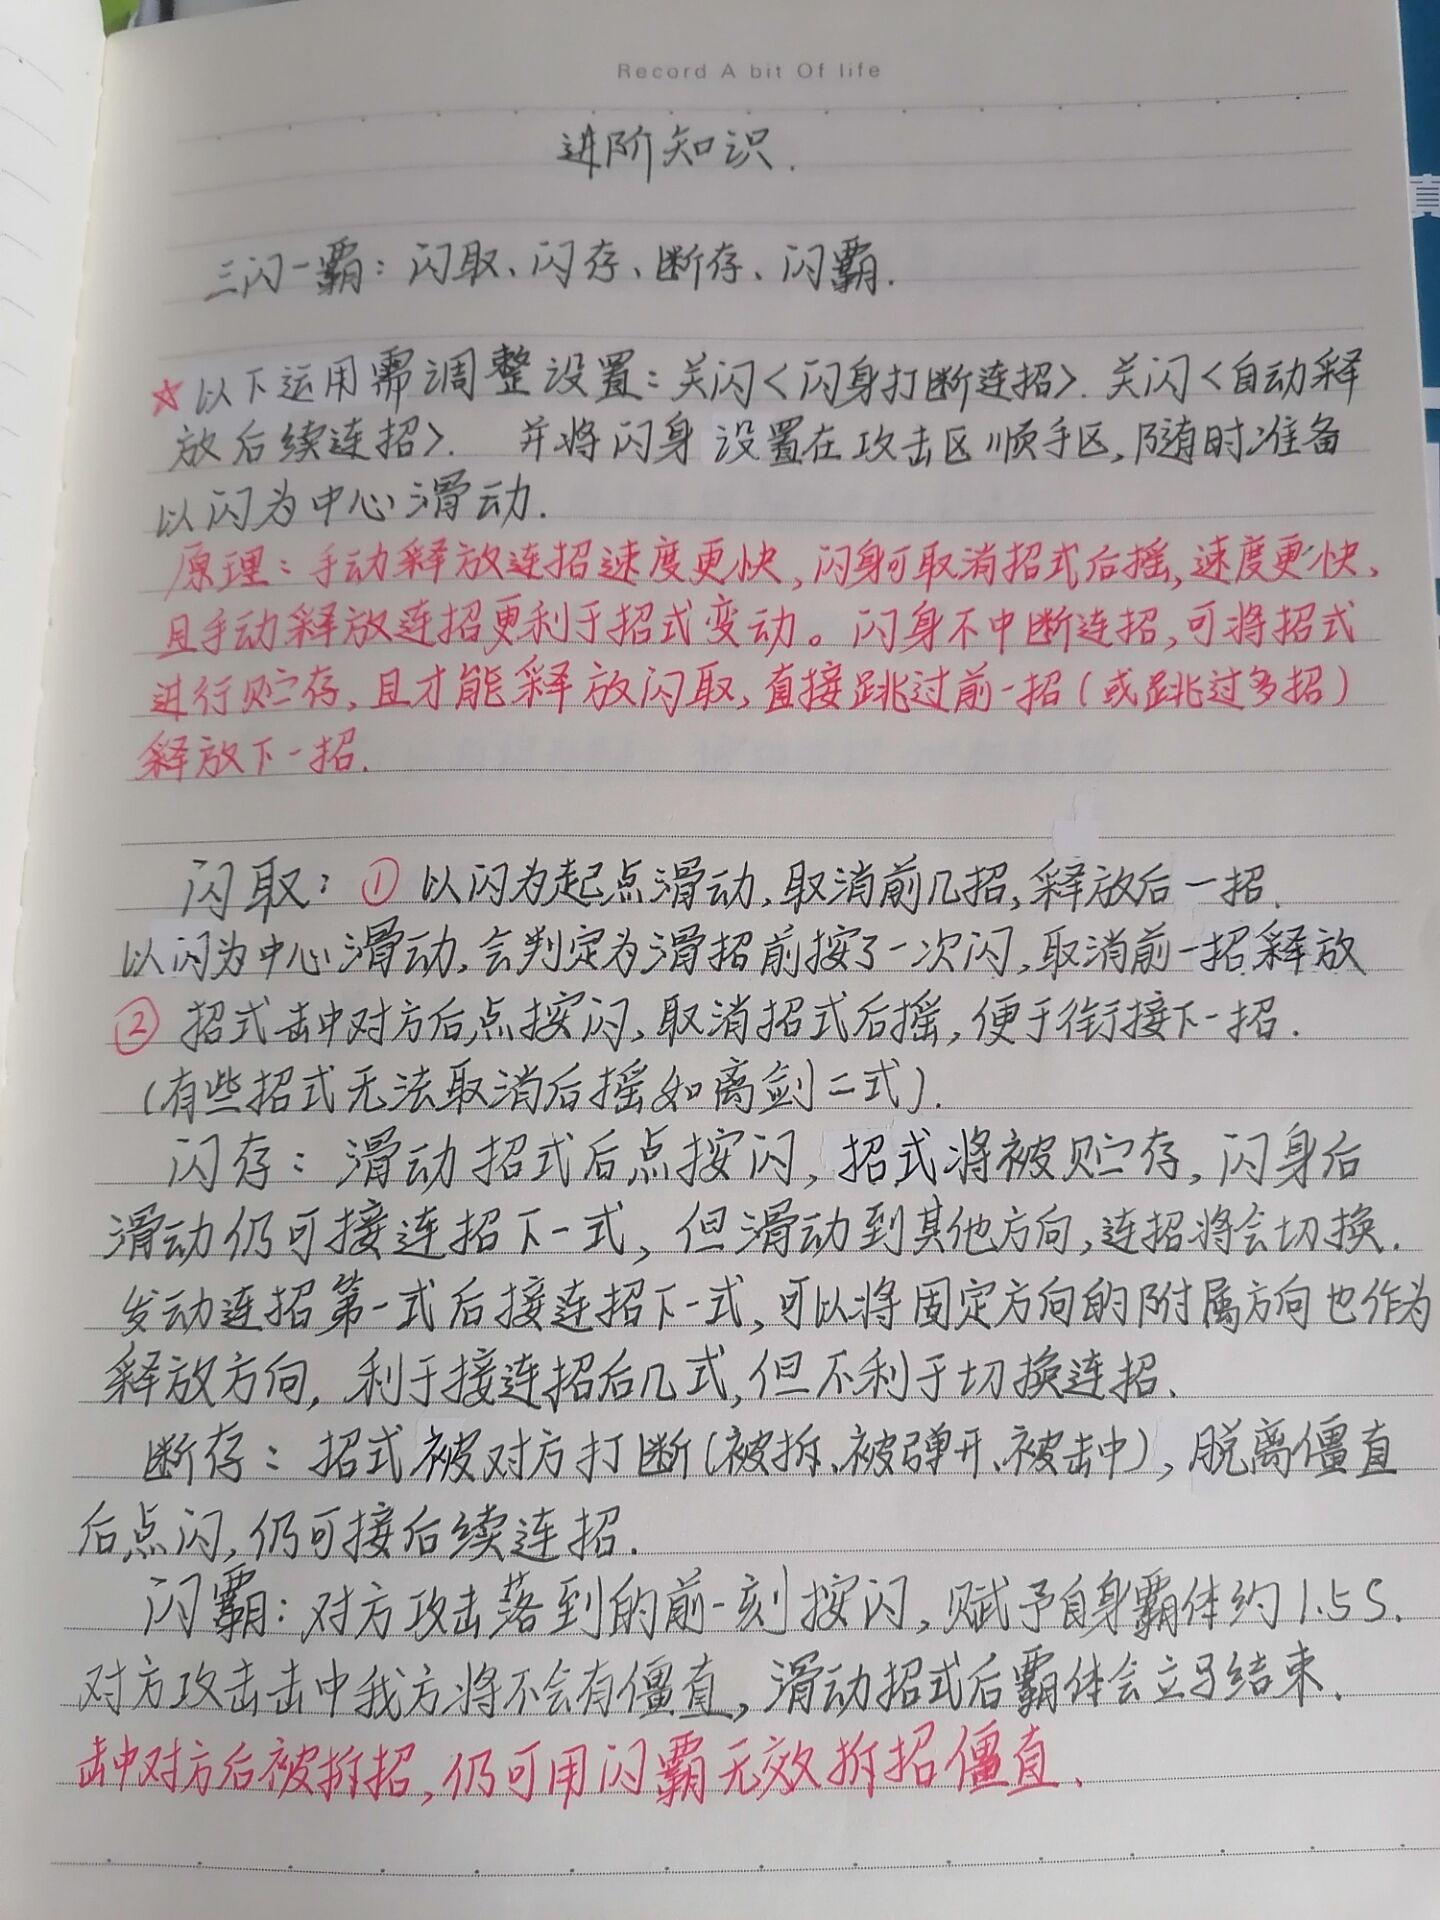 Record A bit Of life
进阶知识.
三闪一霸：闪取、闪存、断存、闪霸.
☆以下运用需调整设置：关闪<闪身打断连招>.关闪<自动释
放后续连招>. 并将闪身设置在攻击区顺手区,随时准备
以闪为中心滑动.
原理：手动释放连招速度更快,闪身可取消招式后摇,速度更快,
且手动释放连招更利于招式变动。闪身不中断连招,可将招式
进行贮存,且才能释放闪取,直接跳过前一招(或跳过多招)
释放下一招.
闪取：①以闪为起点滑动,取消前几招,释放后一招.
以闪为中心滑动,会判定为滑招前按了一次闪,取消前一招释放
②招式击中对方后,点按闪,取消招式后摇,便于衔接下一招.
(有些招式无法取消后摇如离剑二式).
闪存：滑动招式后点按闪,招式将被贮存,闪身后
滑动仍可接连招下一式,但滑动到其他方向,连招将会切换.
发动连招第一式后接连招下一式,可以将固定方向的附属方向也作为
释放方向,利于接连招后几式,但不利于切换连招、
断存：招式被对方打断(被拆、被弹开、被击中),脱离僵直
后点闪,仍可接后续连招.
闪霸：对方攻击落到的前一刻按闪,赋予自身霸体约1.5S.
对方攻击击中我方将不会有僵直,滑动招式后霸体会立马结束、
击中对方后被拆招,仍可用闪霸无效拆招僵直、
言